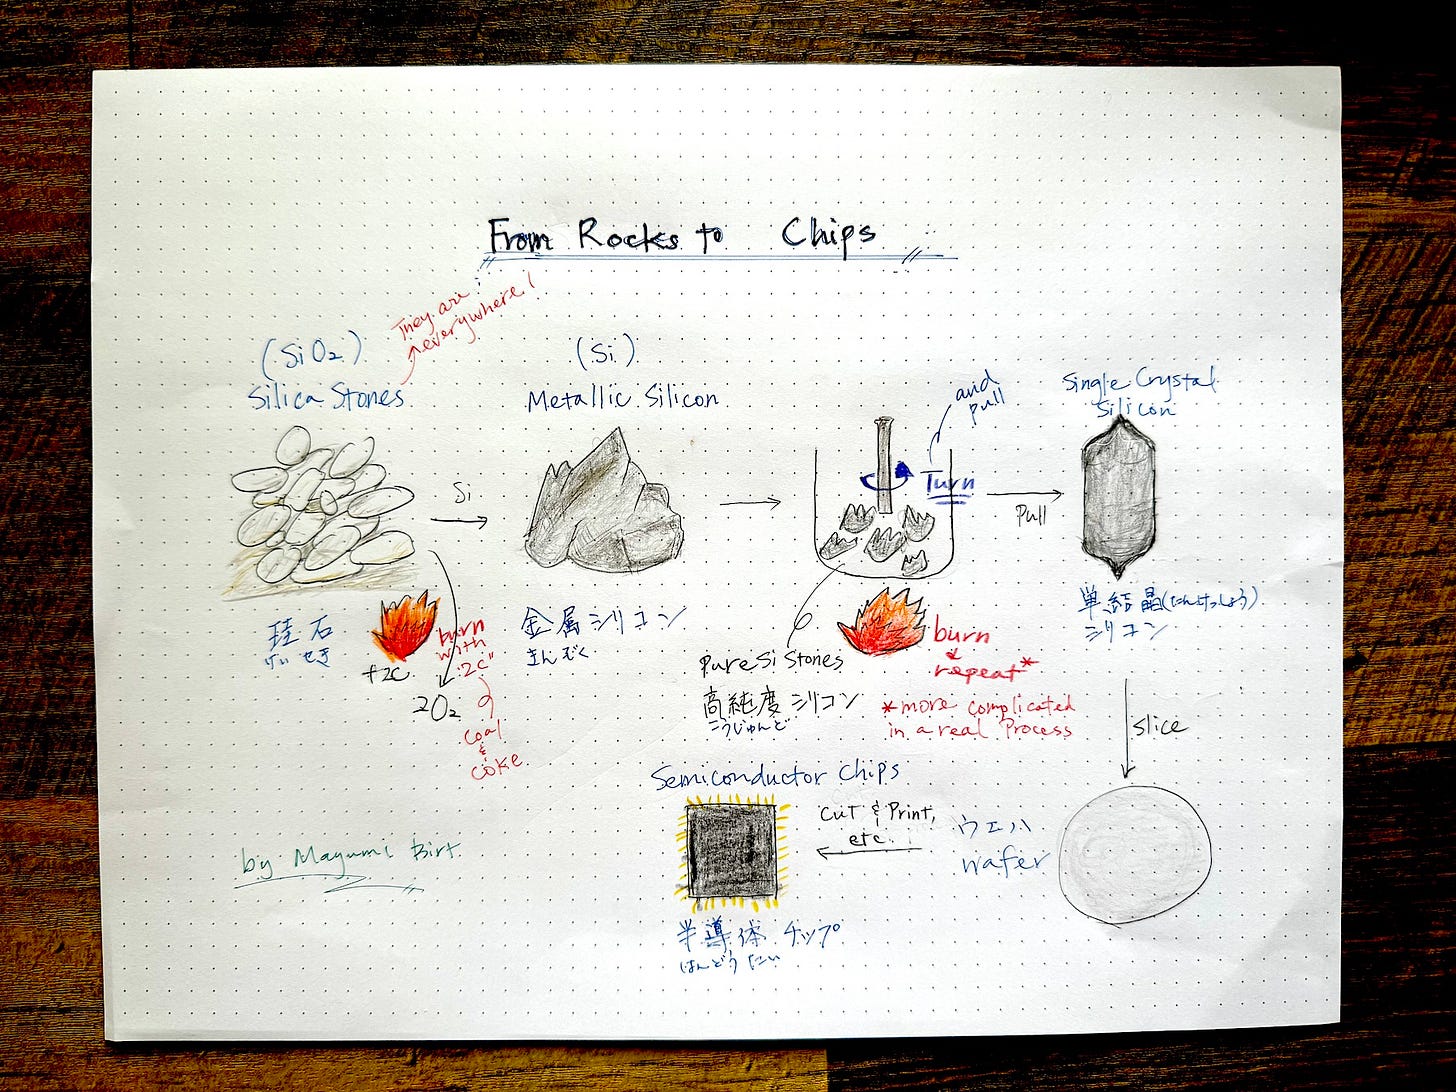 From Rocks to Chips
They are
everywhere!
(SiO2)
Silica Stones
Si
珪石
けいせき
+2C
2O2
burn
with
"2C"
coal
&
coke
(Si)
Metallic Silicon
金属シリコン
きんぞく
and
pull
Turn
Pure Si Stones
高純度シリコン
こうじゅんど
burn
&
repeat*
*more complicated
in a real Process
Pull
Single Crystal
Silicon
単結晶(たんけっしょう)
シリコン
slice
ウエハ
wafer
Cut & Print,
etc.
Semiconductor Chips
半導体チップ
はんどうたい
by Mayumi Birt